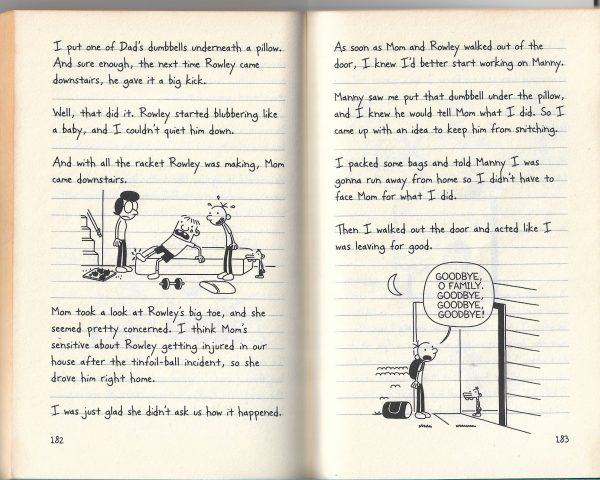 I put one of Dad's dumbbells underneath a pillow.
And sure enough, the next time Rowley came
downstairs, he gave it a big kick.
Well, that did it. Rowley started blubbering like
a baby, and I couldn't quiet him down.
And with all the racket Rowley was making, Mom
came downstairs.
Mom took a look at Rowley's big toe, and she
seemed pretty concerned. I think Mom's
sensitive about Rowley getting injured in our
house after the tinfoil-ball incident, so she
drove him right home.
I was just glad she didn't ask us how it happened.
182
As soon as Mom and Rowley walked out of the
door, I knew I'd better start working on Manny.
Manny saw me put that dumbbell under the pillow,
and I knew he would tell Mom what I did. So I
came up with an idea to keep him from snitching.
I packed some bags and told Manny I was
gonna run away from home so I didn't have to
face Mom for what I did.
Then I walked out the door and acted like I
was leaving for good.
GOODBYE,
O FAMILY.
GOODBYE,
GOODBYE,
GOODBYE!
183